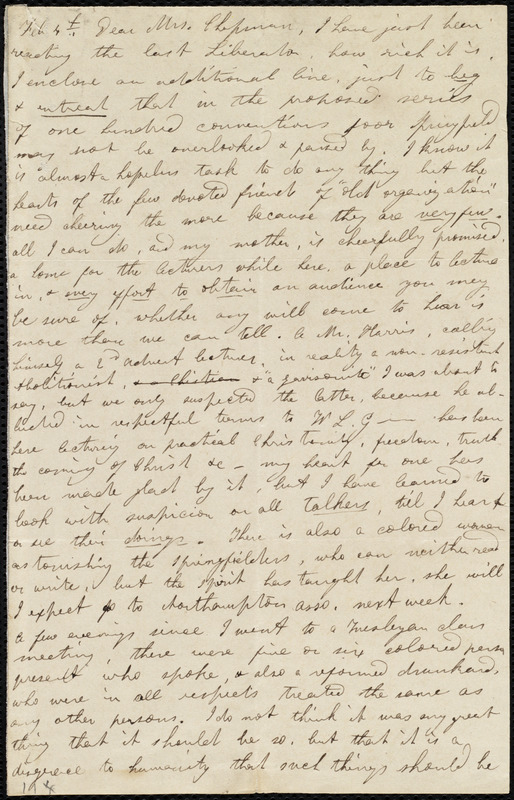 Feb 4th. Dear Mrs. Chapman, I have just been
reading the last Liberator, how rich it is.
I enclose an additional line, just to beg
& entreat that in the proposed series
of one hundred conventions poor Springfield
may not be overlooked & passed by. I know it
is almost a hopeless task to do any thing but the
hearts of the few devoted friends of "old organization"
need cheering the more because they are very few.
all I can do, and my mother, is cheerfully promised,
a home for the lecturers while here, a place to lecture
in, & every effort to obtain an audience you may
be sure of, whether any will come to hear is
more than we can tell. A Mr. Harris, calling
himself a 2nd advent lecturer, in reality a non-resistant
Abolitionist, & a Christian & "a garrisonite" I was about to
say, but we only suspected the latter, because he al-
luded in respectful terms to W L. G—— has been
here lecturing on practical Christianity, freedom, truth
the coming of Christ &c — my heart for one has
been made glad by it, but I have learned to
look with suspicion on all talkers, till I hear of
or see their doings. There is also a colored woman
astonishing the Springfielders, who can neither read
or write, but the spirit has taught her, she will
I expect go to Northampton asso. next week.
A few evenings since I went to a Wesleyan class
meeting, there were five or six colored persons
present who spoke, & also a reformed drunkard,
who were in all respects treated the same as
any other persons. I do not think it was any great
thing that it should be so, but that it is a
disgrace to humanity that such things should be